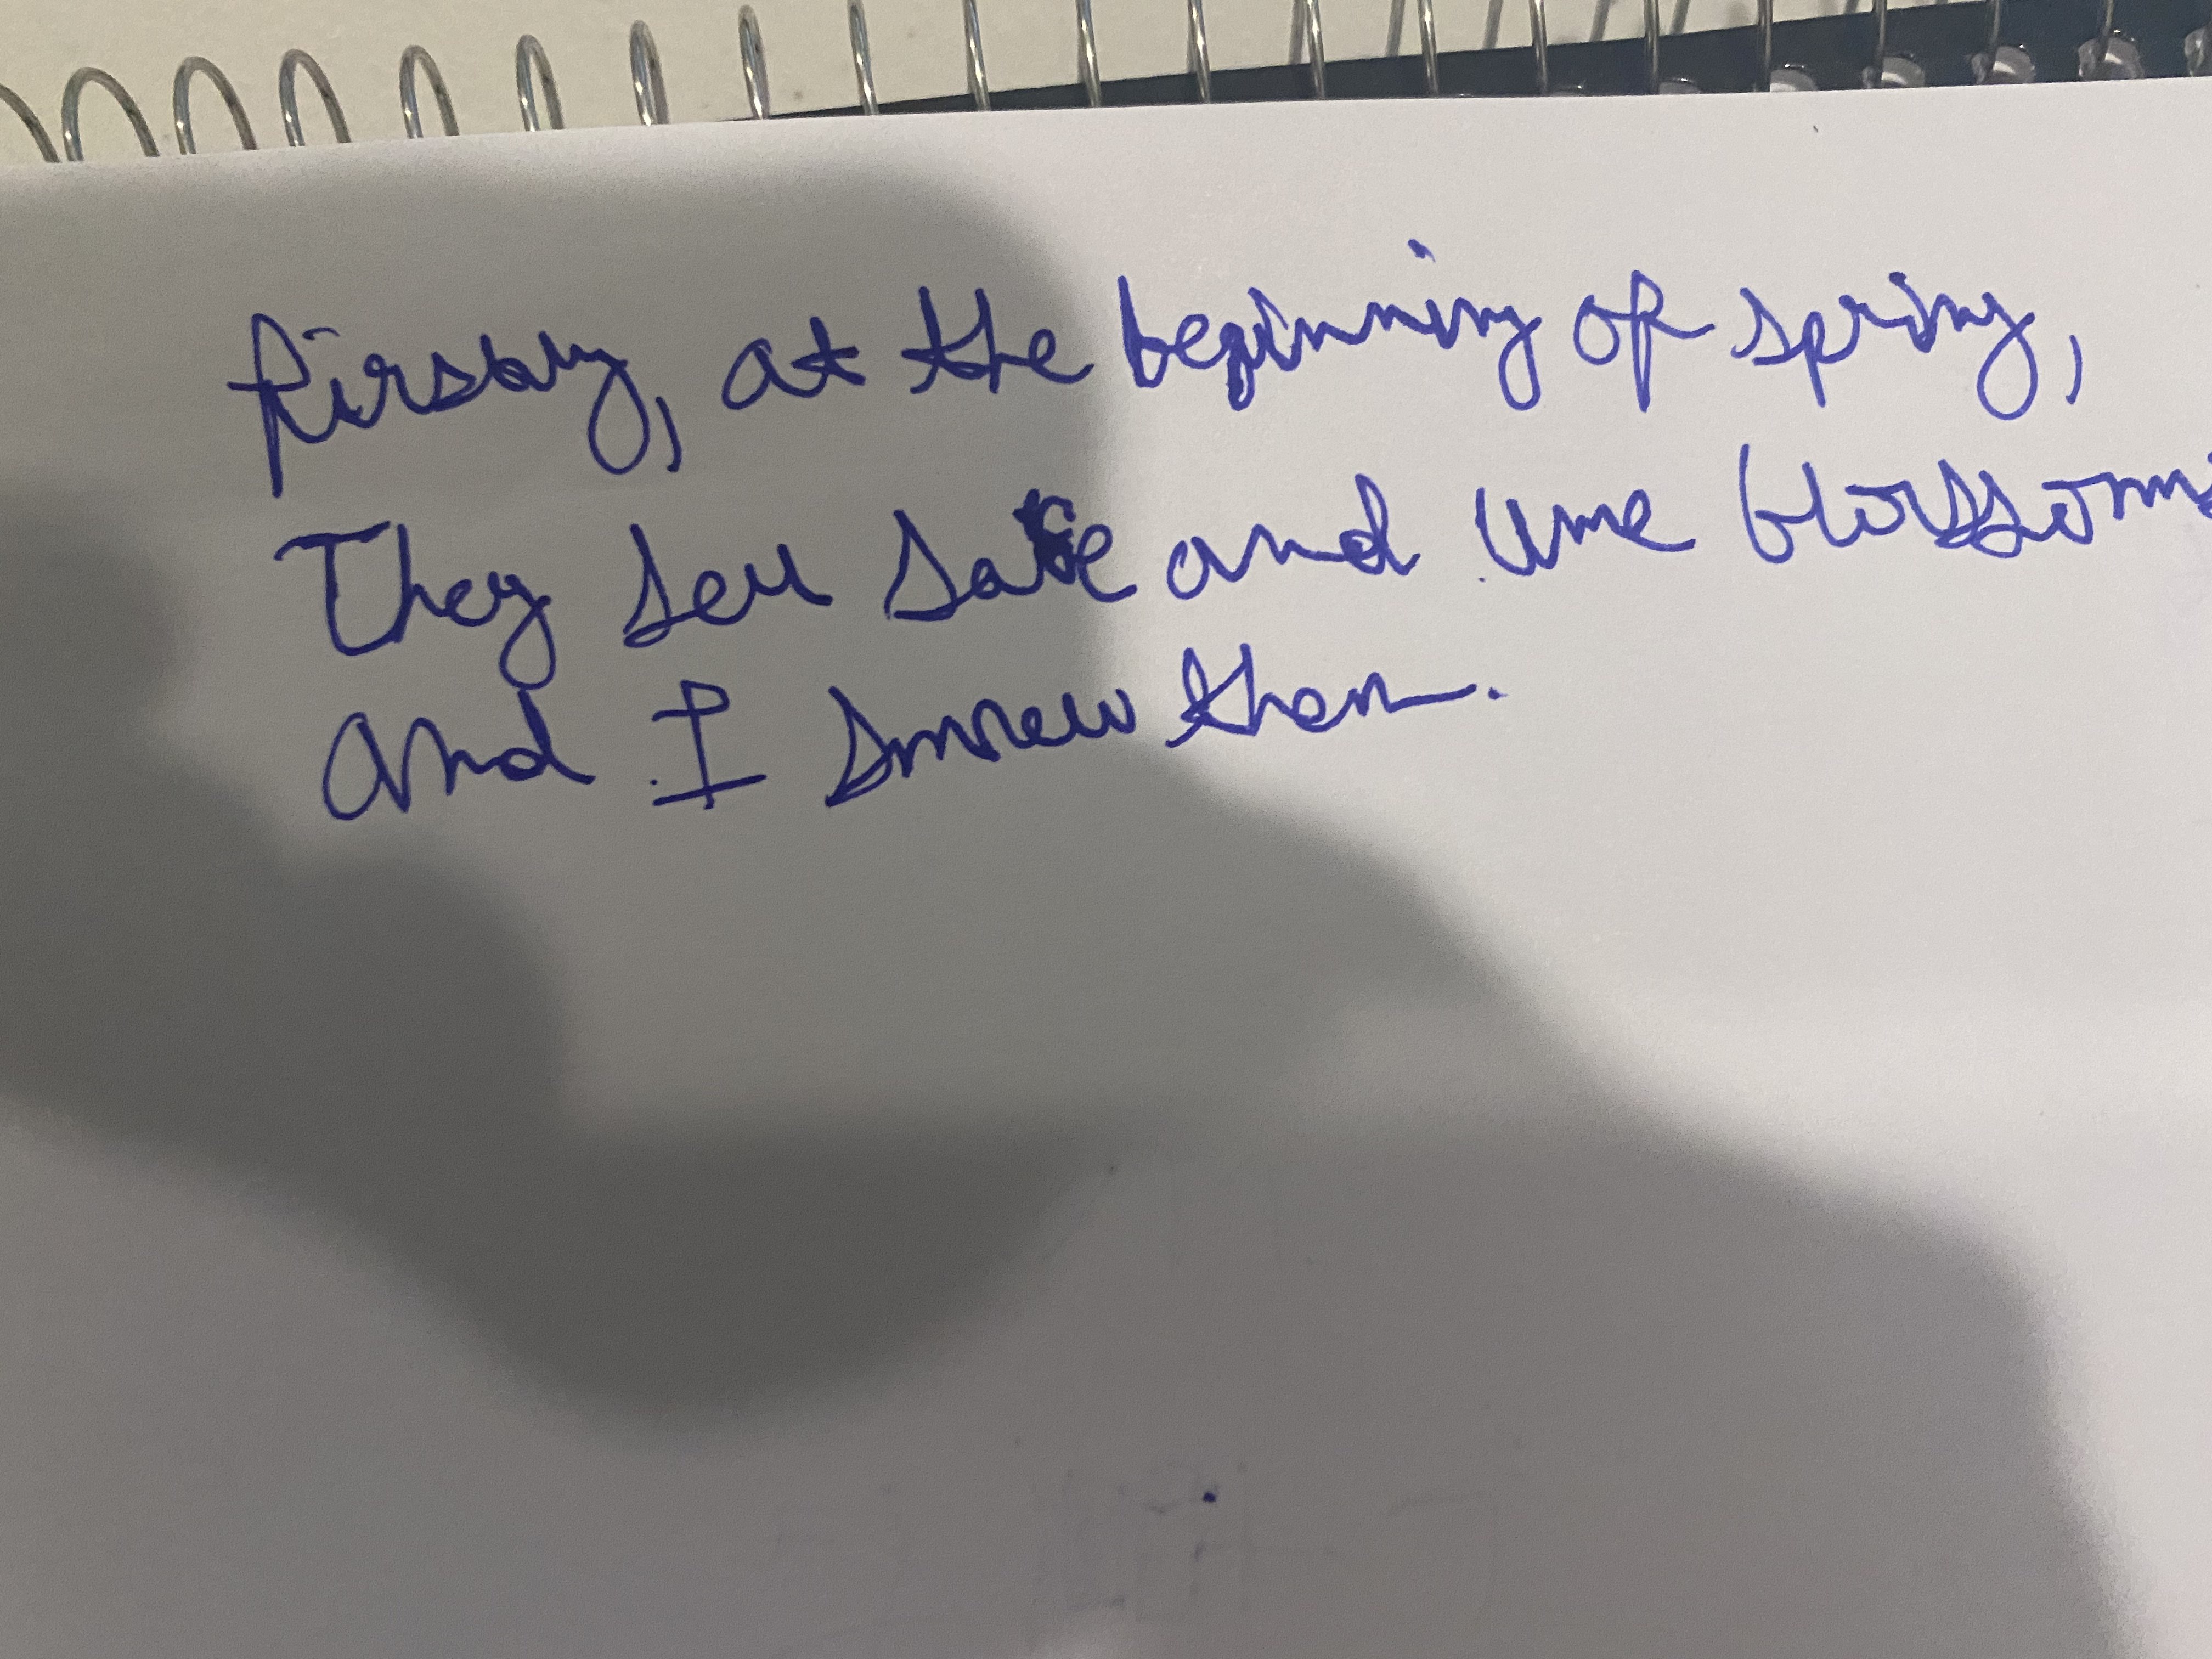 firstly, at the beginning of spring,
They sell sake and ume blossoms
and I smell them.